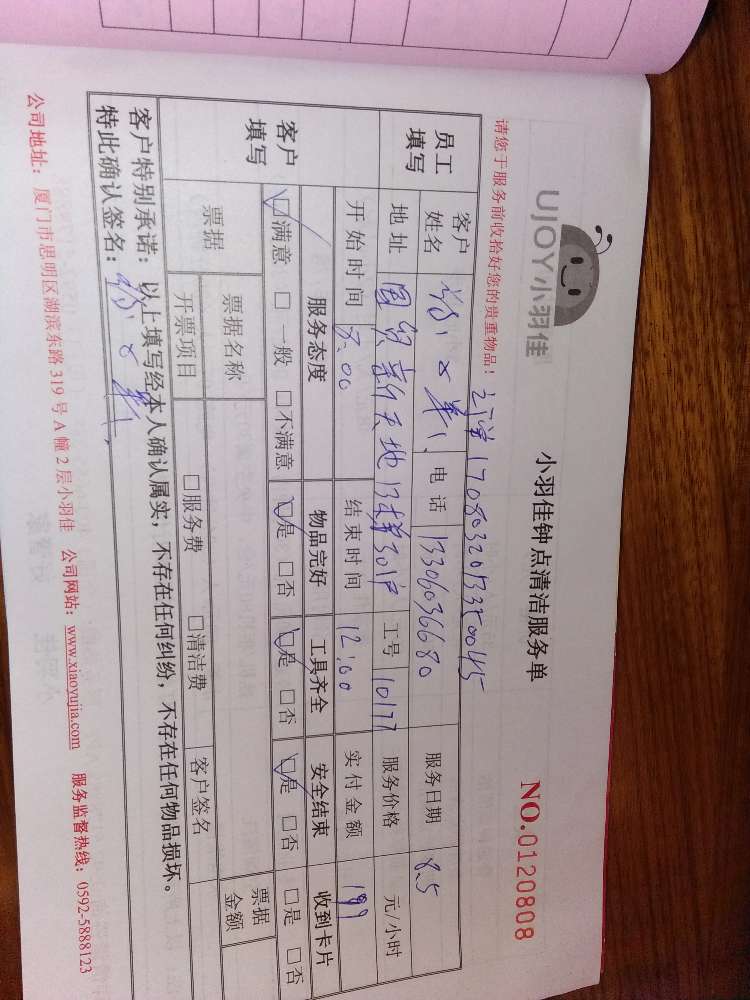 UJOY小羽佳
小羽佳钟点清洁服务单
NO.0120808
请您于服务前收拾好您的贵重物品!
员工填写 客户姓名 电话 13306036680 服务日期 8.5
地址 国贸新天地 工号 10177 服务价格 元/小时
客户填写 开始时间 8:00 结束时间 12:00 实付金额 199
服务态度 物品完好 工具齐全 安全结束 收到卡片
☑满意 □一般 □不满意 ☑是 □否 ☑是 □否 ☑是 □否 □是 □否
票据 票据名称 票据金额
开票项目 □服务费 □清洁费 客户签名
客户特别承诺:以上填写经本人确认属实,不存在任何纠纷,不存在任何物品损坏。
特此确认签名:
公司地址:厦门市思明区湖滨东路319号A幢2层小羽佳 公司网站:www.xiaoyujia.com 服务监督热线:0592-5888123